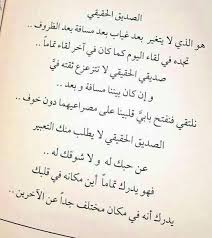 الصديق الحقيقي
هو الذي لا يتغير بعد غياب بعد مسافة بعد الظروف ..
تجده في لقاء اليوم كما كان في آخر لقاء تماماً ..
صديقي الحقيقي لا تتزعزع ثقته فيَّ
و إن كان بيننا مسافة و بعد ..
نلتقي فنفتح بابيَّ قلبينا على مصراعيهما دون خوف ..
الصديق الحقيقي لا يطلب منك التعبير
عن حبك له و لا شوقك له ..
فهو يدرك تماماً أين مكانه في قلبك
يدرك أنه في مكان مختلف جداً عن الآخرين ..